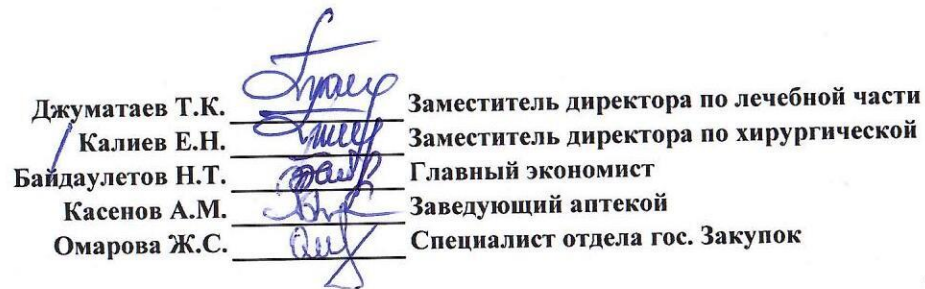 Джуматаев Т.К. Заместитель директора по лечебной части
Калиев Е.Н. Заместитель директора по хирургической
Байдаулетов Н.Т. Главный экономист
Касенов А.М. Заведующий аптекой
Омарова Ж.С. Специалист отдела гос. Закупок